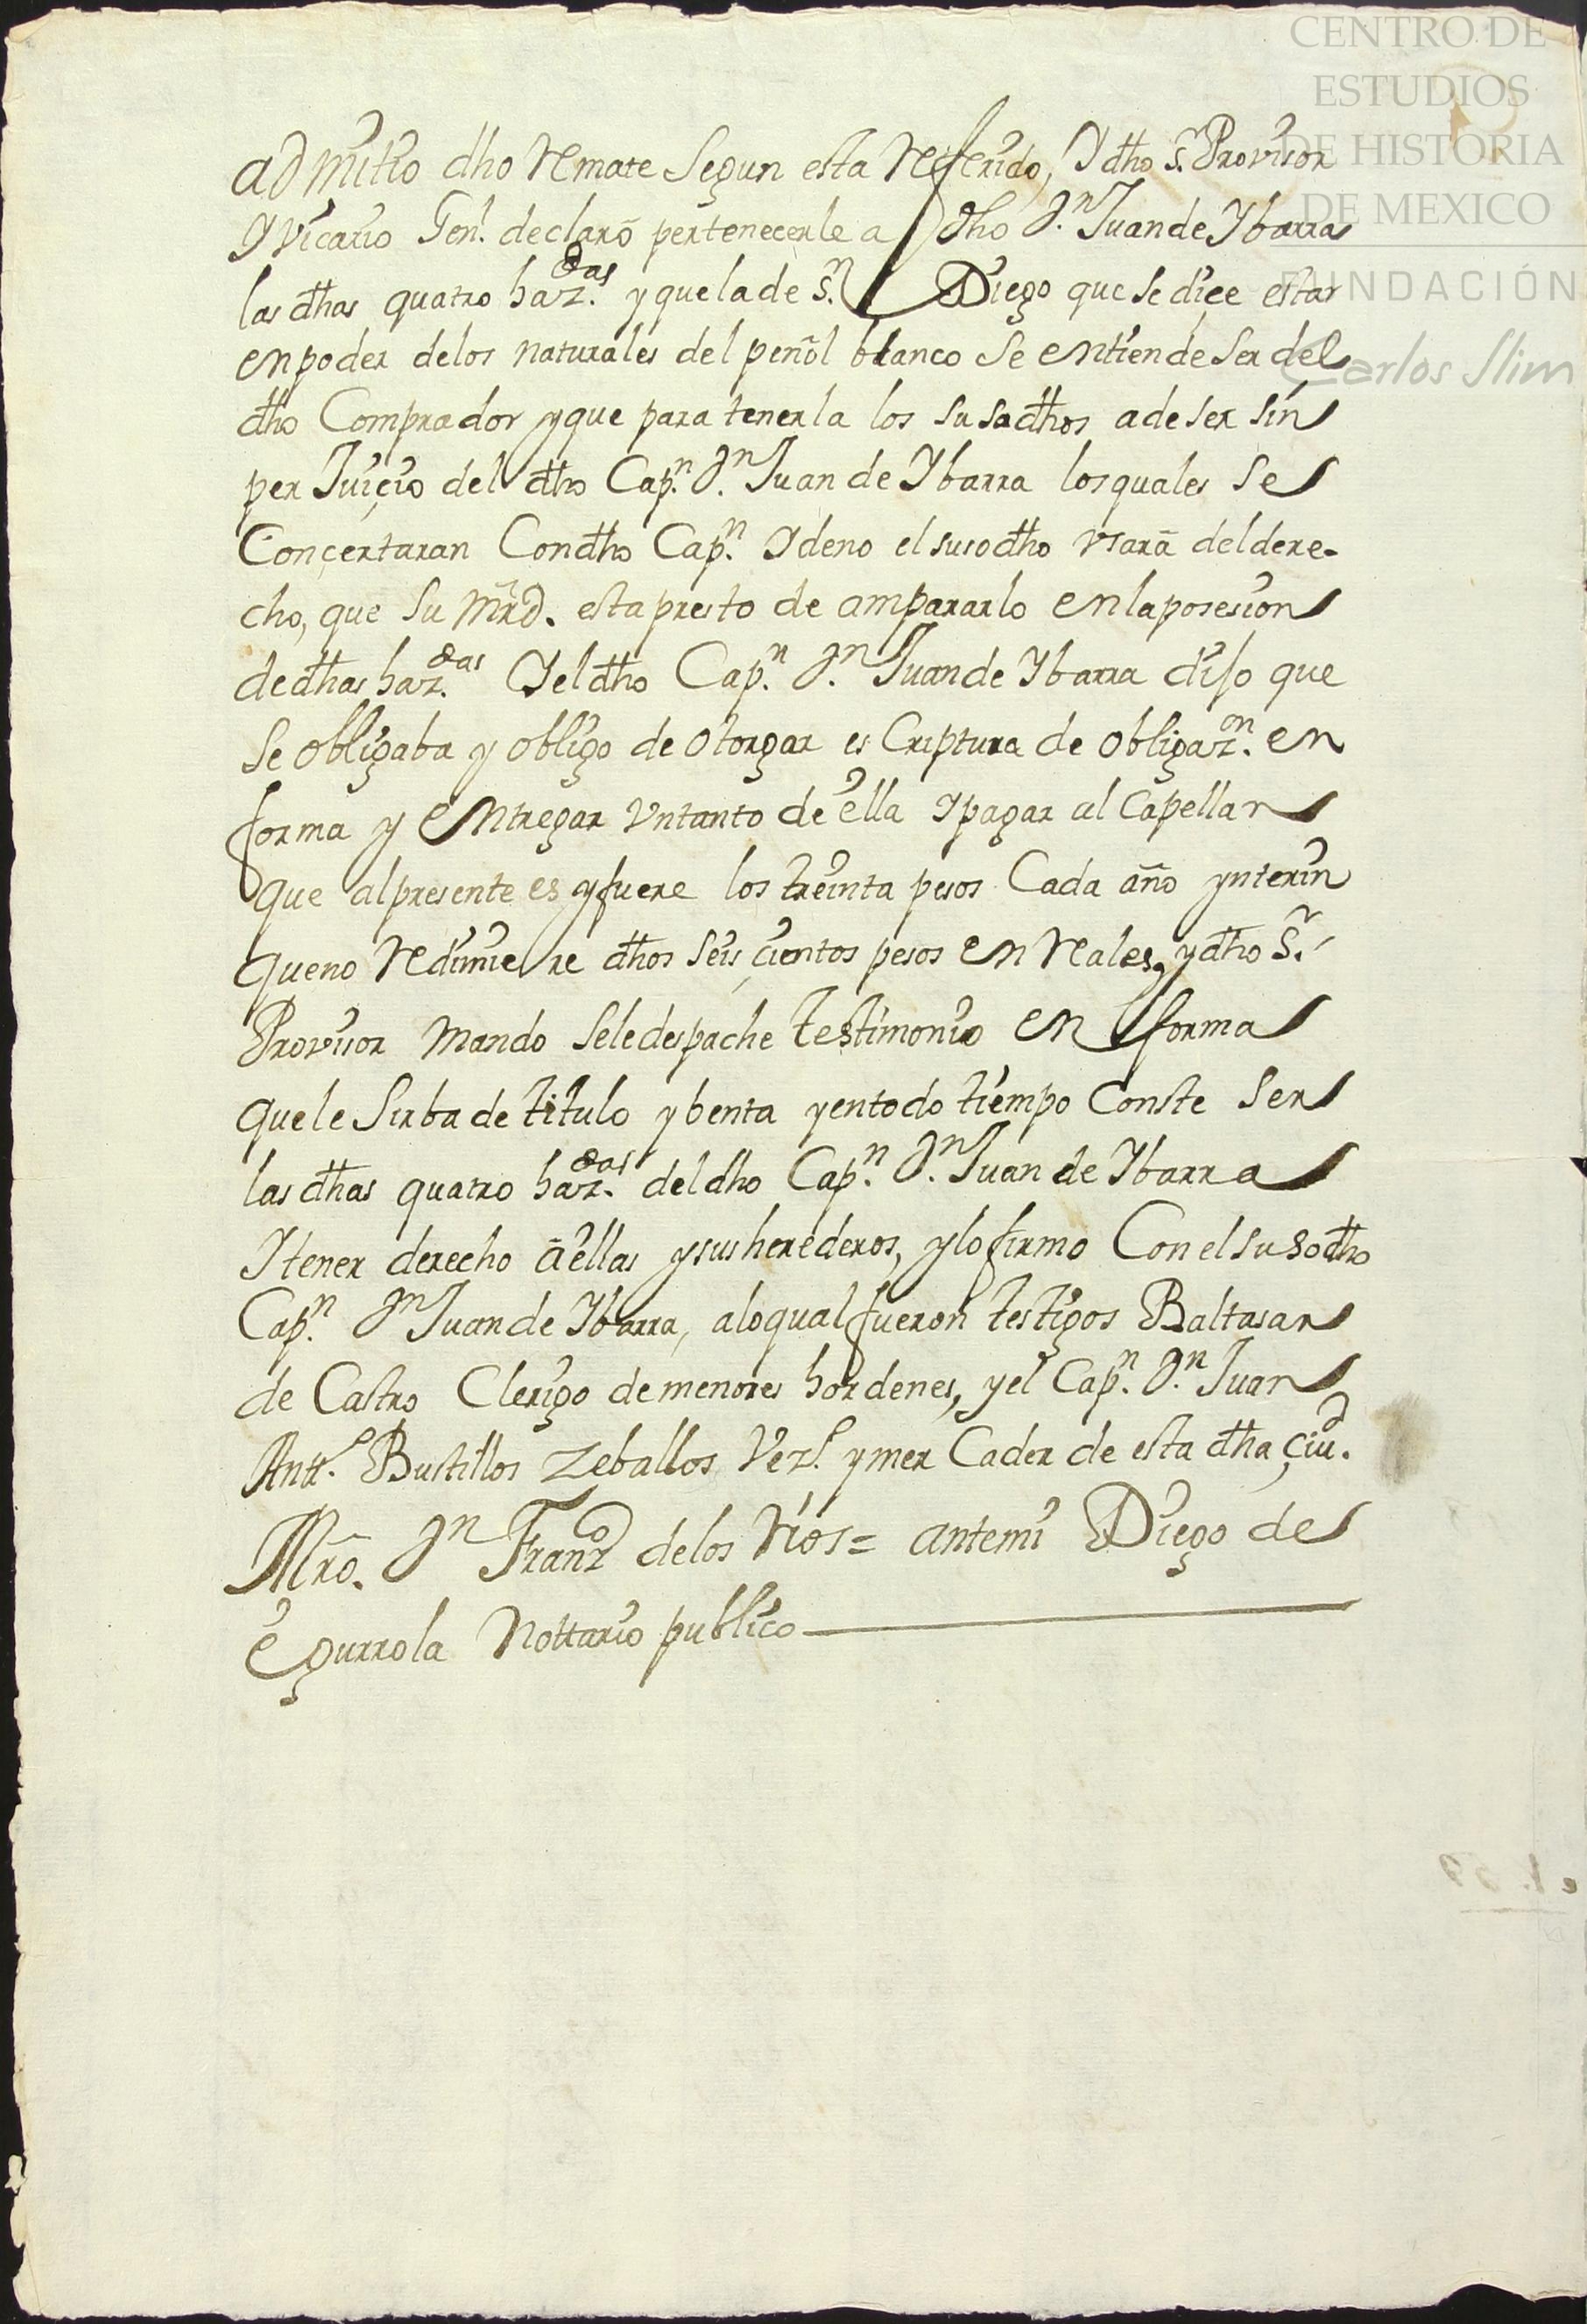 CENTRO DE
ESTUDIOS
DE HISTORIA
DE MEXICO
FUNDACIÓN
Carlos Slim
admitio dho Remate Segun esta Referido, Y dho S.r Provisor
Y Vicario Gen.l declarô pertenecerle a dho D.n Juan de Ybarra
las dhas quatro haz.das y que la de S.n Diego que se diçe estar
en poder de los naturales del peñol blanco Se entiende Ser del
dho Comprador y que para tenerla los Susadhos a de ser sin
per Juiçio del dho Cap.n D.n Juan de Ybarra los quales Se
Conçertaran Con dho Cap.n Y de no el susodho Vsarâ del dere-
cho, que Su Mrd. esta presto de ampararlo en la posesion
de dhas haz.das Y el dho Cap.n D.n Juan de Ybarra diso que
Se obligaba y obligo de otorgar es Criptura de obligaz.on en
forma y entregar Vn tanto de ella Y pagar al Capellan
que al presente es y fuere los treinta pesos Cada año ynterin
que no Redimiere dhos Seis çientos pesos en Reales, y dho S.r
Provisor Mando Se le despache testimonio en forma
que le Sirba de titulo y benta y en todo tiempo Conste Ser
las dhas quatro haz.das del dho Cap.n D.n Juan de Ybarra
Y tener derecho â ellas y sus herederos, y lo firmo Con el susodho
Cap.n D.n Juan de Ybarra, a lo qual fueron testigos Baltasar
de Castro Clerigo de menores hordenes, y el Cap.n D.n Juan
Antt.o Bustillos Zeballos Vez.o y mer Cader de esta dha çiu.d
Mrô. D.n Franz.o de los Rios = ante mi Diego de
Egurrola Nottario publico